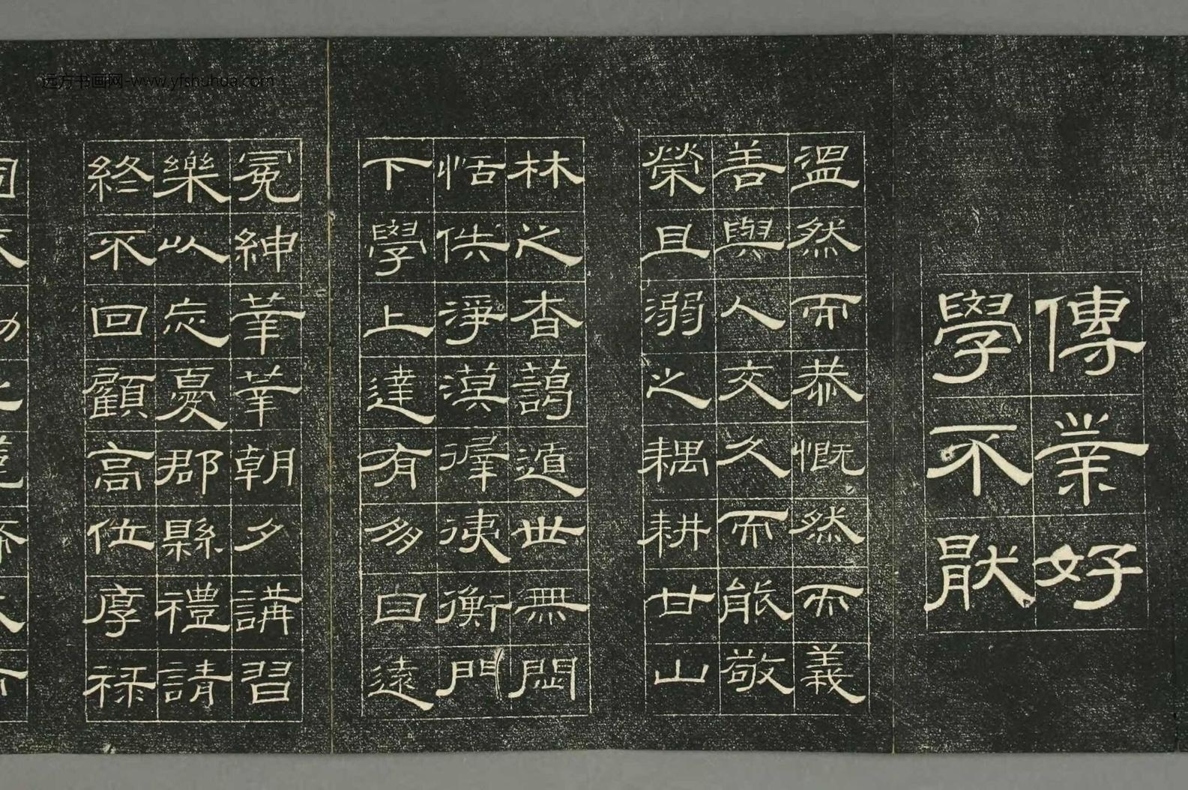 傳業好
學不猒
溫然而恭慨然而義
善與人交久而能敬
榮且溺之耦耕甘山
林之杳藹遁世無悶
恬佚淨漠徲𢓡衡門
下學上達有朋自遠
冕紳莘莘朝夕講習
樂以忘憂郡縣禮請
終不回顧高位厚祿
远方书画网-www.yfshuhua.com